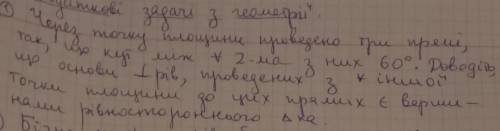 даткові задачі з геометрії".
① Через точку площини проведено три прямі,
так, що кут між ∀ 2-ма з них 60°. Доведіть,
що основи ⊥рів, проведених з ∀ іншої
точки площини до цих прямих є верши-
нами рівностороннього Δка.